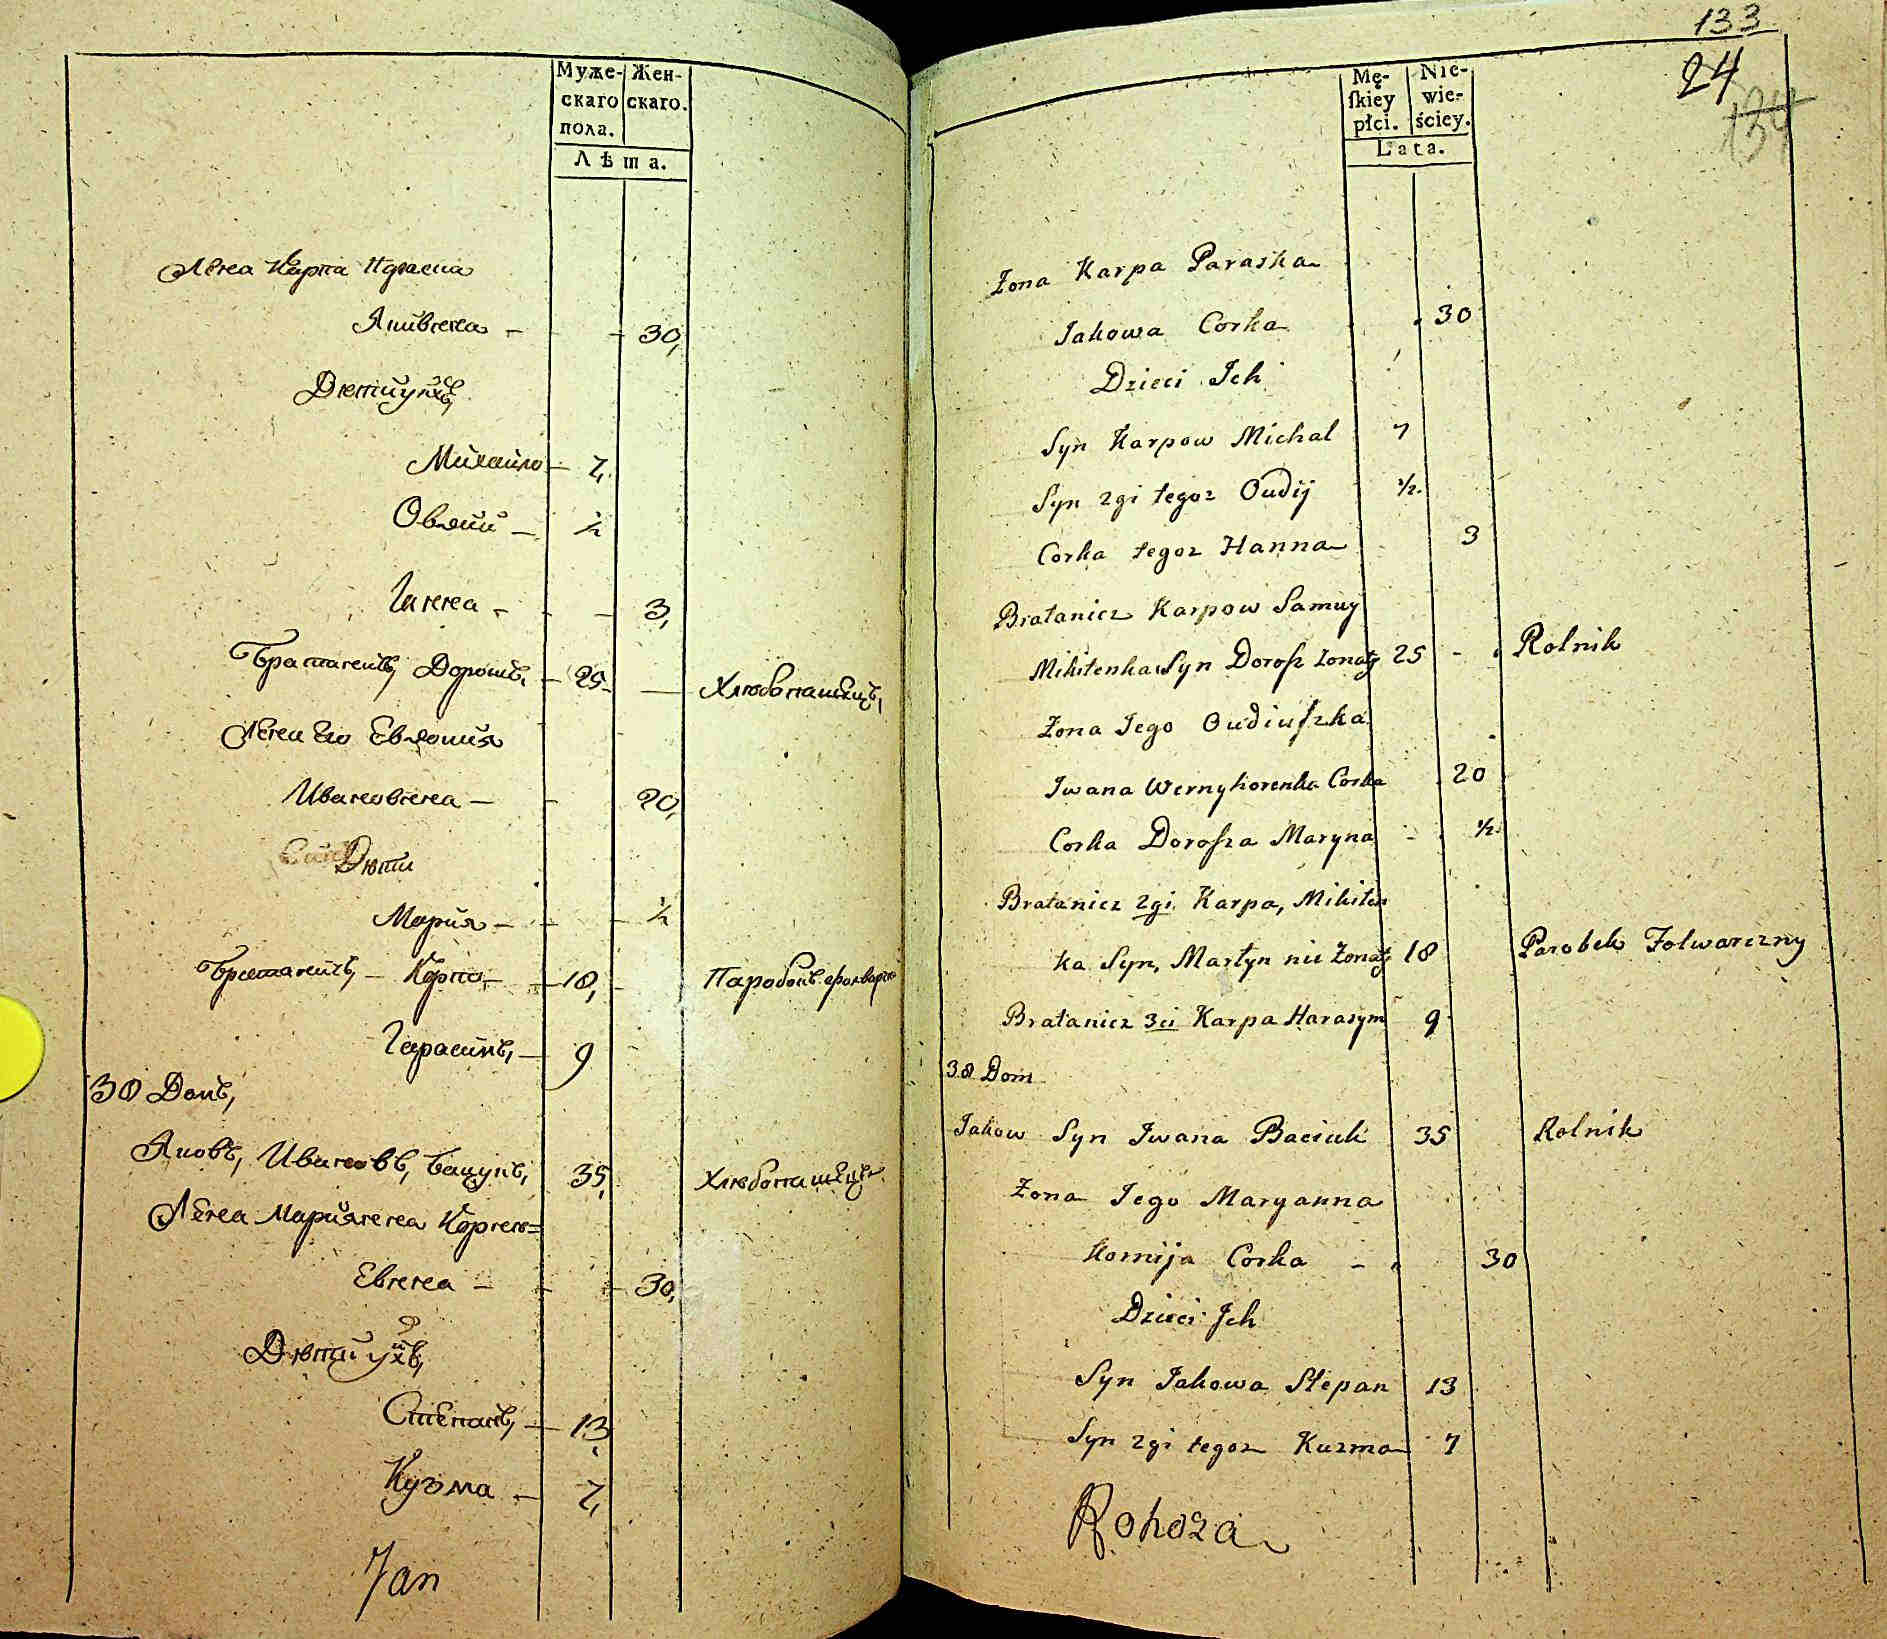 Муже-
скаго
пола.
Жен-
скаго.
Лѣта.
Жена Карпа Параска
Яковлева - 30,
Дѣти ихъ,
Михайло - 7,
Овдій - ½
Ганна - 3,
Братаничъ, Дорошъ, - 25 - Хлѣбопашецъ,
Жена Его Евдокия
Ивановна - 20,
Дѣти
Мария - ½
Братаничъ, - Карпо, - 18, Паробокъ фолваро
Гарасимъ, - 9
38 Домъ,
Яковъ, Ивановъ, Бацукъ, 35, Хлѣбопашецъ
Жена Марианна Корне=
Евна - 30,
Дѣти ихъ,
Степанъ, - 13,
Кузма - 7,
Jan
133
24
134
Mę-
ſkiey
płci.
Nie-
wie-
ściey.
Lata.
Żona Karpa Paraska
Jakowa Corka 30
Dzieci Ich
Syn Karpow Michał 7
Syn 2gi tegoz Oudij ½.
Corka tegoz Hanna 3
Bratanicz Karpow Samuy
Mikitenka Syn Dorosz Żonaty 25 - Rolnik
Żona Jego Oudiuſzka
Iwana Wernyhorenka Corka 20
Corka Doroſza Maryna - ½.
Bratanicz 2gi Karpa, Mikiten
ka Syn, Martyn nie Żonaty 18 Parobek Folwarczny
Bratanicz 3ci Karpa Harasym 9
38 Dom
Jakow Syn Iwana Baciuk 35 Rolnik
Żona Jego Maryanna
Kornija Corka - 30
Dzieci Ich
Syn Jakowa Stepan 13
Syn 2gi tegoz Kuzma 7
Rohoza